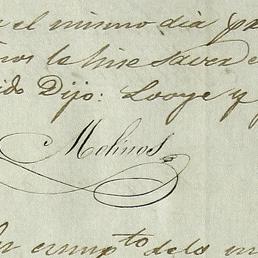 n el mismo dia pa
la hise saver e
ido Dijo: Looye y
Molinos
cump to delo m